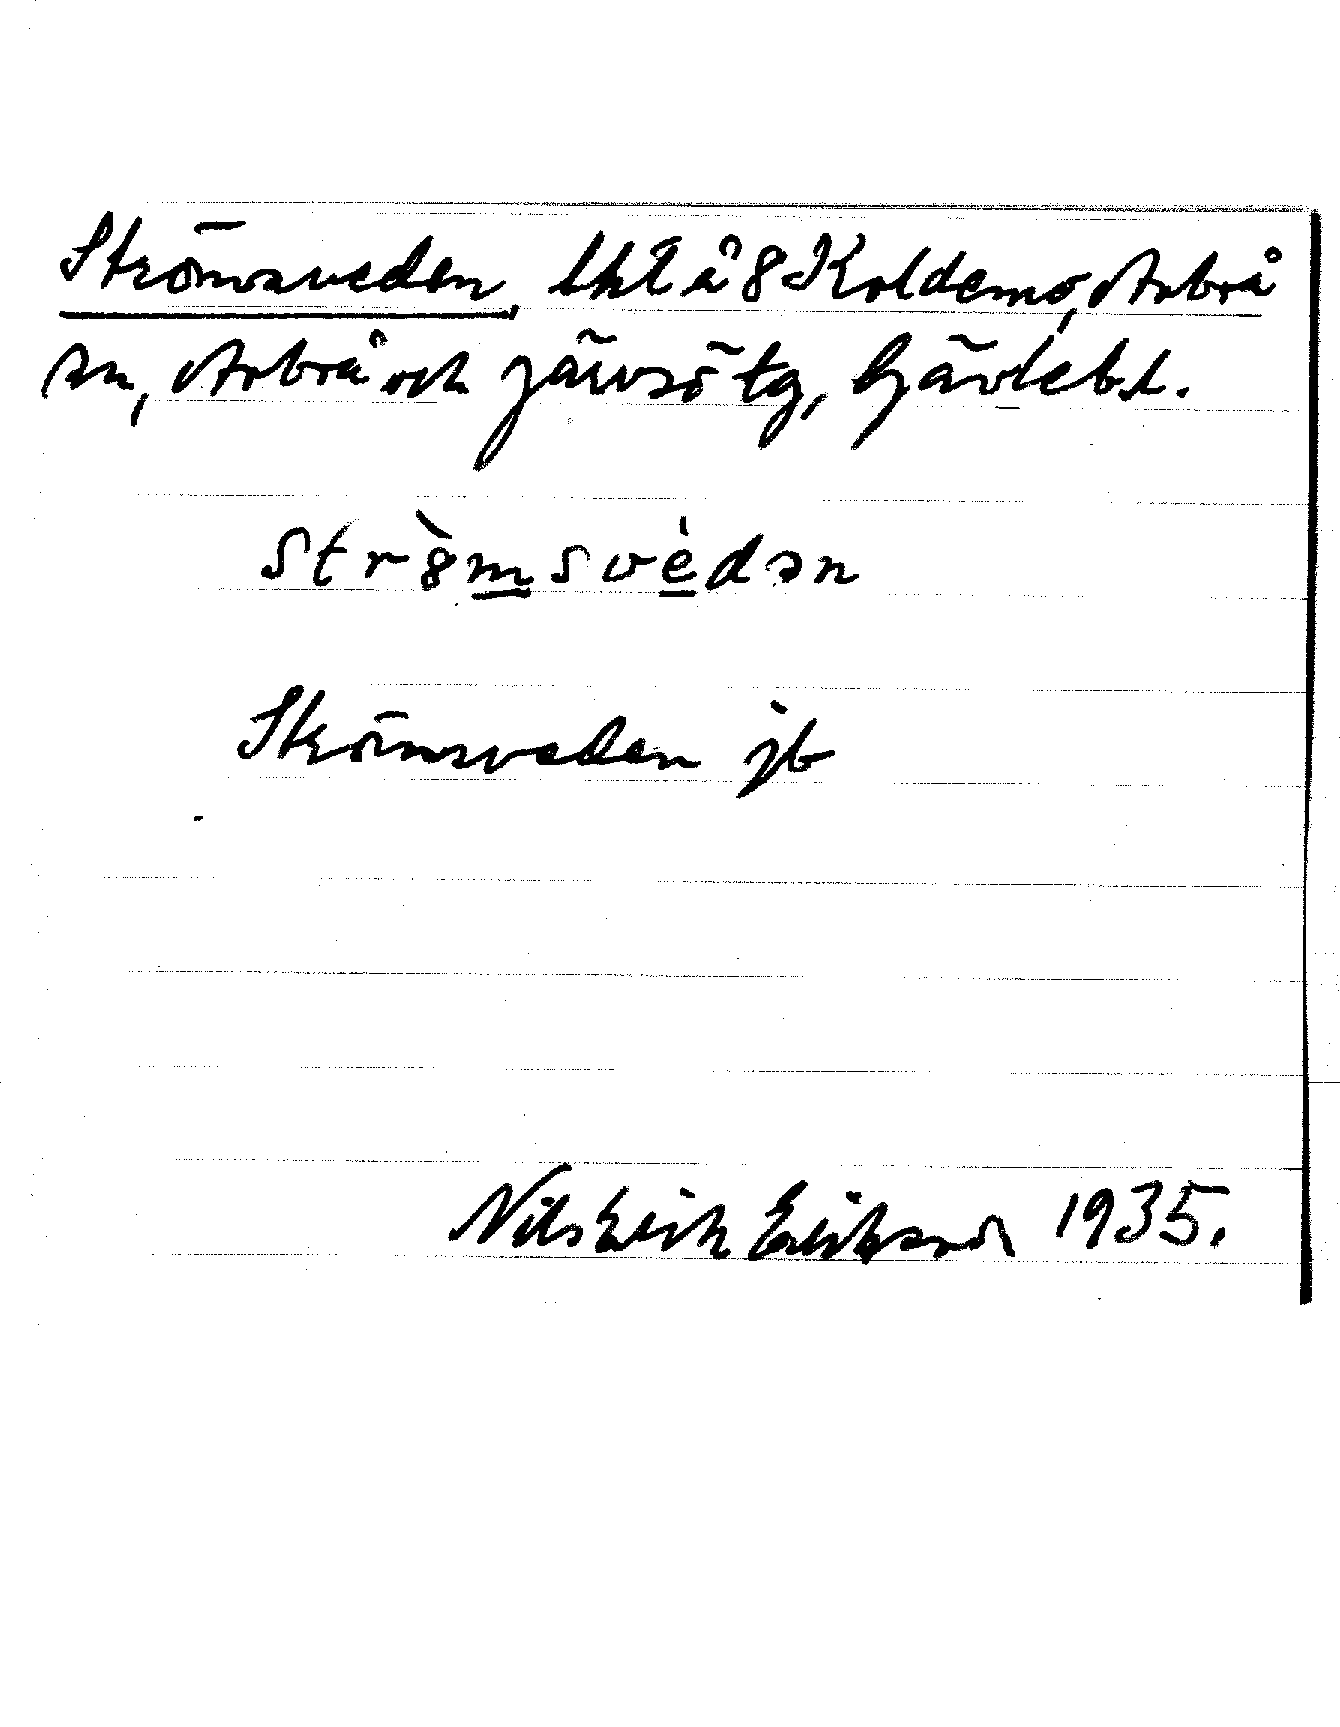 Strömsveden, lht å 8 Koldemo, Arbrå
sn, Arbrå och Järvsö tg, Gävlebl.
strò̈msvèdən
Strömsveden jb
Nils Erik Eriksson 1935.